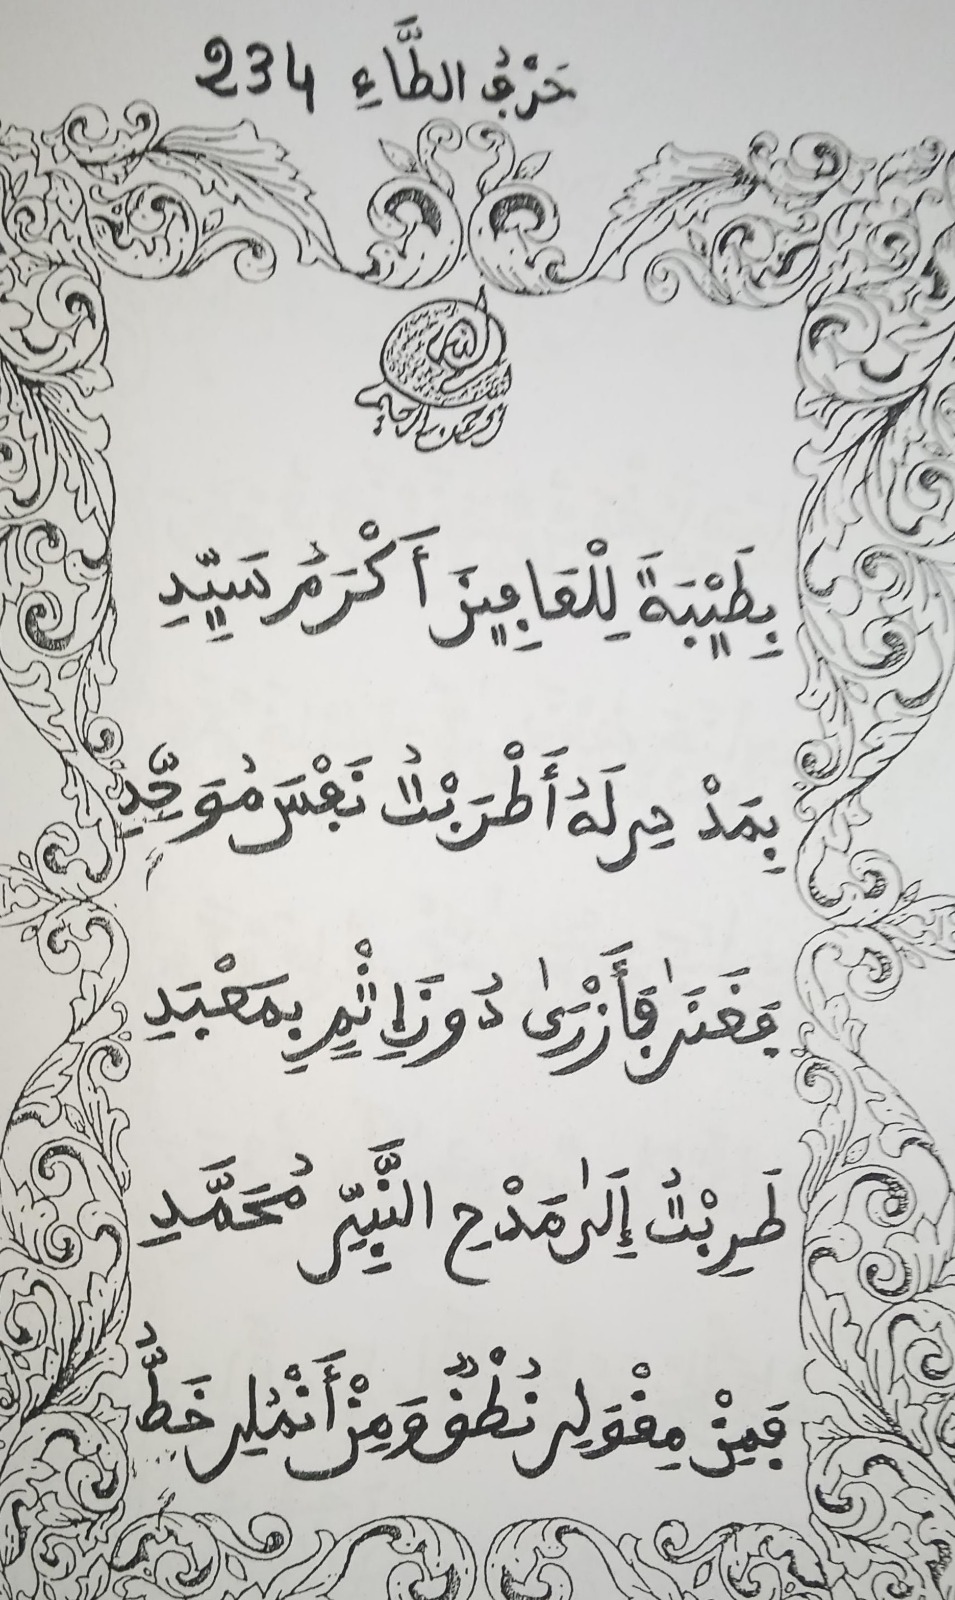 حَرْفُ الطَّاءِ 234
بسم الله
الرحمن الرحيم
بِطَيْبَةَ لِلْعَافِينَ أَكْرَمُ سَيِّدِ
بِمَدْحِي لَهُ أَطْرَبْتُ نَفْسَ مُوَحِّدِ
فَغَنَّىٰ فَأَزْرَىٰ دُونَ إِثْمٍ بِمَعْبَدِ
طَرِبْتُ إِلَىٰ مَدْحِ النَّبِيِّ مُحَمَّدِ
فَمِنْ مِقْوَلِي نُطْقٌ وَمِنْ أَنْمُلِي خَطُّ